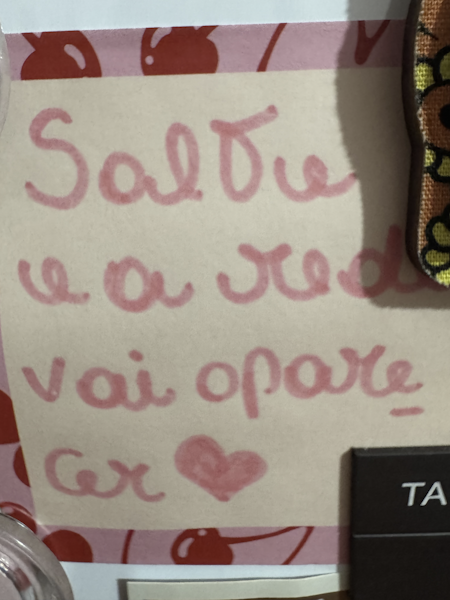 Salte
e a rede
vai apare
cer
TA